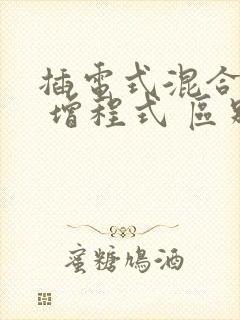 插電式混合
增程式 區別
蜜糖鴆酒